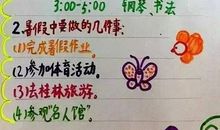 3:00-5:00 钢琴、书法
2.暑假中要做的几件事:
(1)完成暑假作业。
(2)参加体育活动。
(3)去桂林旅游。
(4)参观"名人馆"。